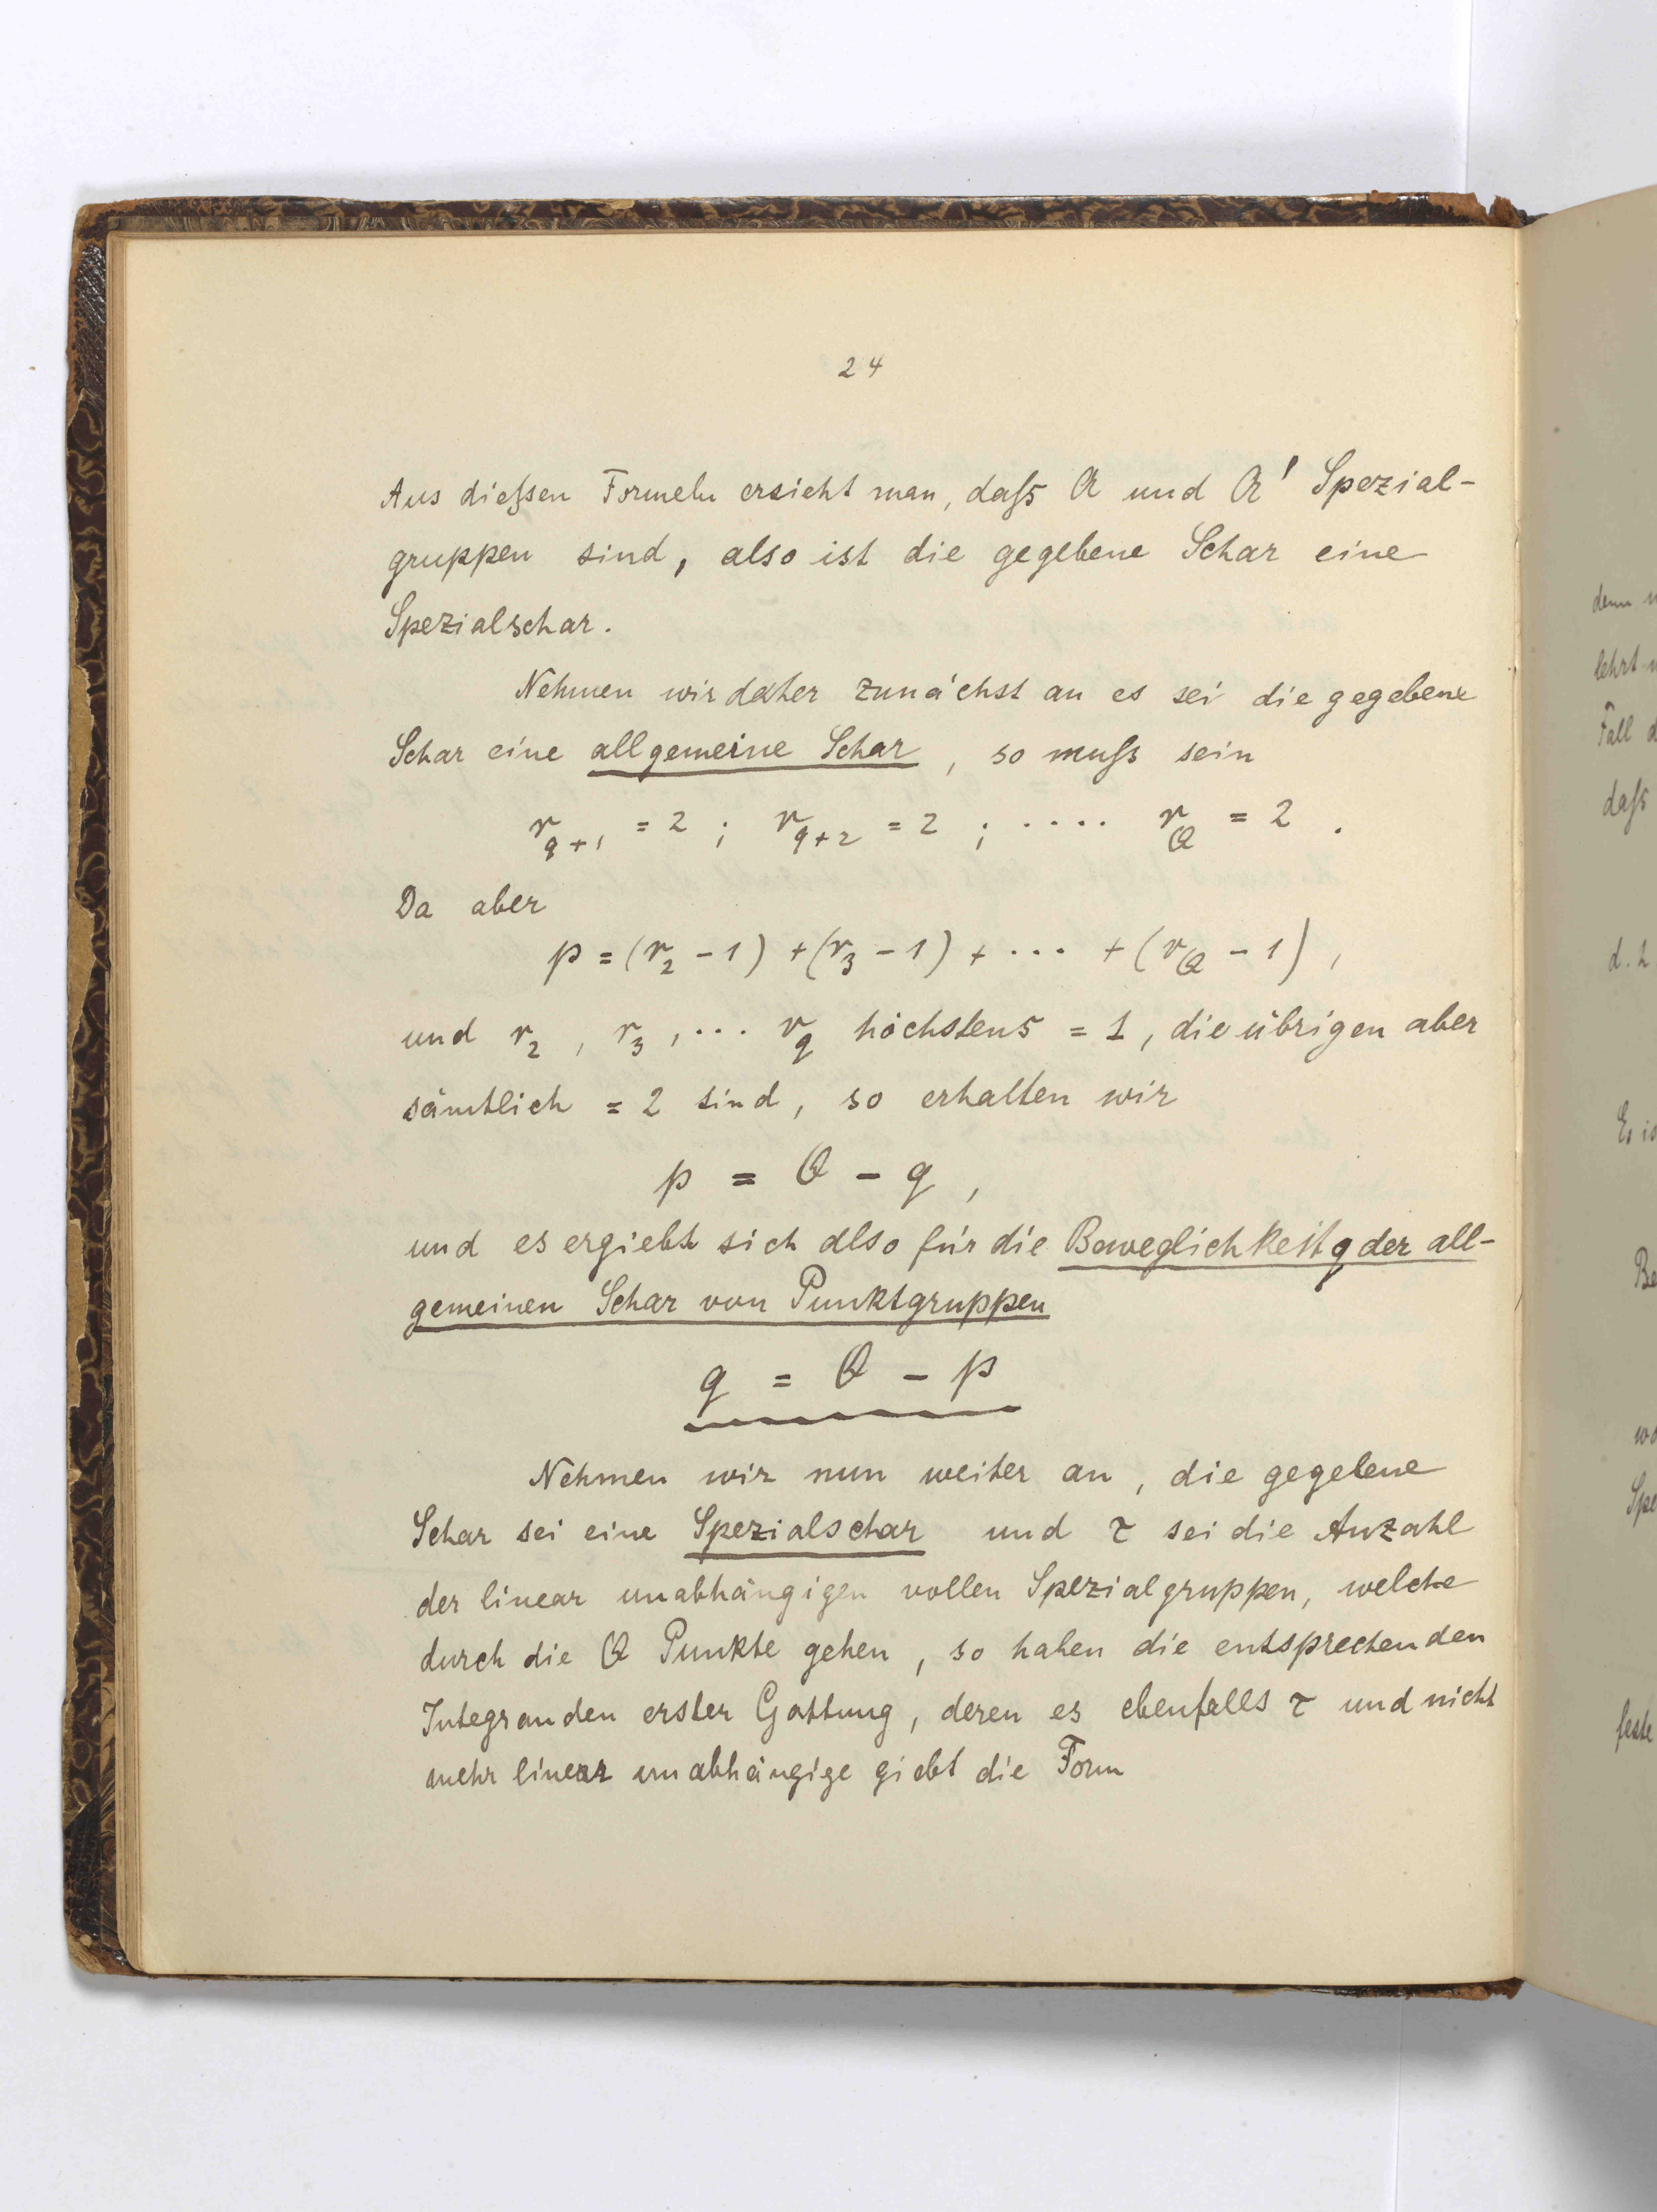 24
Aus dießen Formeln ersieht man, daß Q und Q' Spezial-
gruppen sind, also ist die gegebene Schar eine
Spezialschar.
Nehmen wir daher zunächst an es sei die gegebene
Schar eine allgemeine Schar, so muß sein
r_{q+1} = 2 ; r_{q+2} = 2 ; .... r_Q = 2 .
Da aber
p = (r_2 - 1) + (r_3 - 1) + ... + (r_Q - 1) ,
und r_2 , r_3 , ... r_q höchstens = 1, die übrigen aber
sämtlich = 2 sind, so erhalten wir
p = Q - q ,
und es ergiebt sich also für die Beweglichkeit q der all-
gemeinen Schar von Punktgruppen
q = Q - p
Nehmen wir nun weiter an, die gegebene
Schar sei eine Spezialschar und τ sei die Anzahl
der linear unabhängigen vollen Spezialgruppen, welche
durch die Q Punkte gehen, so haben die entsprechenden
Integranden erster Gattung, deren es ebenfalls τ und nicht
mehr linear unabhängige giebt die Form
denn
lehrt
Fall
daß
d. 2
Es is
Be
wo
Spe
feste